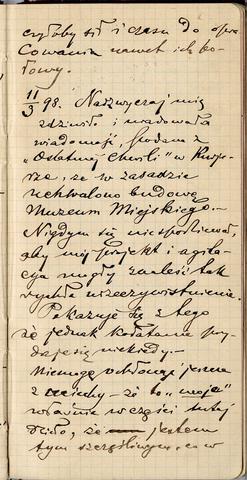 czyłoby sił i czasu do opra
cowania nawet ich po-
łowy.
11/3 98. Nadzwyczaj mię
zdziwiła i uradowała
wiadomość, podana z
"Ostatniej Chwili" w Kurje-
rze, że w zasadzie
uchwalono budowę
Muzeum Miejskiego.
Nigdym się niespodziewał,
aby mój projekt i agita-
cya mogły znaleść tak
rychłe urzeczywistnienie.
Pokazuje się z tego
że jednak kołatanie przy-
daje się niekiedy.
Niemogę ochłonąć jeszcze
z uciechy - że to "moje"
właśnie w części tutaj
dzieło, że jestem
tym szczęśliwym, co w